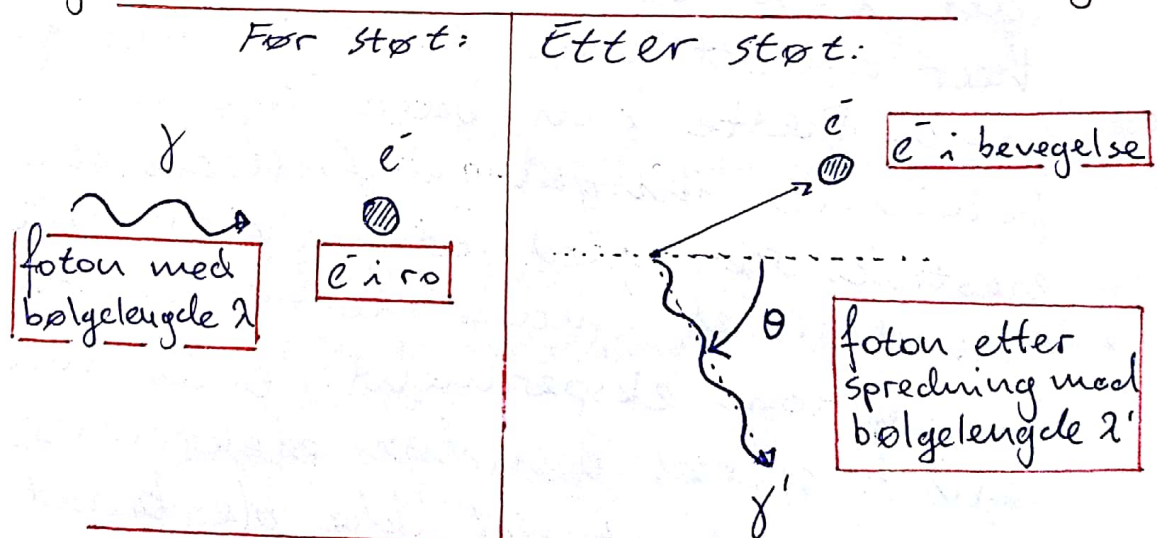 Før støt:
Etter støt:
γ
e⁻
foton med
bølgelengde λ
e⁻ i ro
e⁻
e⁻ i bevegelse
θ
foton etter
spredning med
bølgelengde λ'
γ'